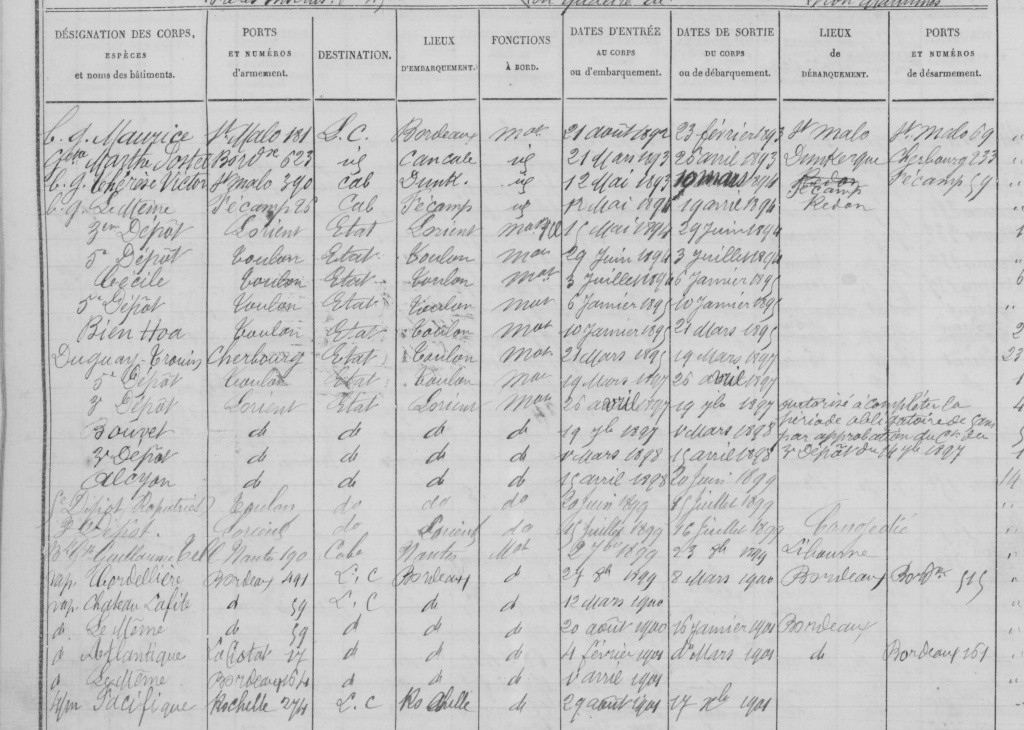 DÉSIGNATION DES CORPS, ESPÈCES et noms des bâtiments. | PORTS ET NUMÉROS d'armement. | DESTINATION. | LIEUX D'EMBARQUEMENT. | FONCTIONS À BORD. | DATES D'ENTRÉE AU CORPS ou d'embarquement. | DATES DE SORTIE DU CORPS ou de débarquement. | LIEUX de DÉBARQUEMENT. | PORTS ET NUMÉROS de désarmement.
b. g. Maurice | St Malo 181 | L. C. | Bordeaux | mot | 21 août 1892 | 23 février 1893 | St Malo | St Malo 69
Marthe | Bordx 623 | id | Cancale | id | 21 Mars 1893 | 26 avril 1893 | Dunkerque | Cherbourg 233
b. g. Thérèse Victor | St Malo 390 | Cab | Dunk. | id | 12 Mai 1893 | 10 mars 1894 | Fécamp | Fécamp 59
b. g. Le Même | Fécamp 26 | Cab | Fécamp | id | 12 Mai 1894 | 19 avril 1894 | Redon
3em Dépôt | Lorient | Etat | Lorient | mot | 15 Mai 1894 | 29 Juin 1894
5e Dépôt | Toulon | Etat | Toulon | mot | 29 Juin 1894 | 3 Juillet 1894
Cécile | Toulon | Etat | Toulon | Mot | 3 Juillet 1894 | 6 Janvier 1895
5e Dépôt | Toulon | Etat | Toulon | mot | 6 Janvier 1895 | 10 Janvier 1895
Bien Hoa | Toulon | Etat | Toulon | Mot | 10 Janvier 1895 | 21 Mars 1895 | 2
Duguay-Trouin | Cherbourg | Etat | Toulon | Mot | 21 Mars 1895 | 19 Mars 1897 | 23
5e Dépôt | Toulon | Etat | Toulon | Mot | 19 Mars 1897 | 26 avril 1897 | 1
3e Dépôt | Lorient | Etat | Lorient | Mot | 26 avril 1897 | 19 7bre 1897 | autorisé à compléter la | 4
période obligatoire de 5 ans
Bouvet | do | do | do | do | 19 7bre 1897 | 1er Mars 1898 | par approbation du
3e Dépôt | do | do | do | do | 1er Mars 1898 | 15 avril 1898 | 3e Dépôt du 14 7bre 1897 | 1
Alcyon | do | do | do | do | 15 avril 1898 | 20 Juin 1899 | 14
5e Dépôt Rapatriés | Toulon | do | do | do | 20 Juin 1899 | 15 Juillet 1899
3e Dépôt. | Lorient | do | Lorient | do | 15 Juillet 1899 | 16 Juillet 1899 | Congédié
Guillaume Tell | Nantes 190 | Cabe | Nantes | Mot | 2 7bre 1899 | 23 8bre 1899 | Libourne
vap. Cordellière | Bordeaux 491 | L. C | Bordeaux | d | 27 8bre 1899 | 8 Mars 1900 | Bordeaux | Bordx 515
vap. Château Lafite | d | 59 | L. C | do | do | 12 Mars 1900
d. Le Même | do | 59 | d | do | d | 20 août 1900 | 16 Janvier 1901 | Bordeaux
d Atlantique | La Ciotat 17 | d | do | d | 4 février 1901 | Mars 1901 | do | Bordeaux 261
d Le Même | Bordeaux 264 | d | do | d | 1er avril 1901
Pacifique | Rochelle 274 | L. C | Rochelle | do | 29 août 1901 | 17 Xbre 1901